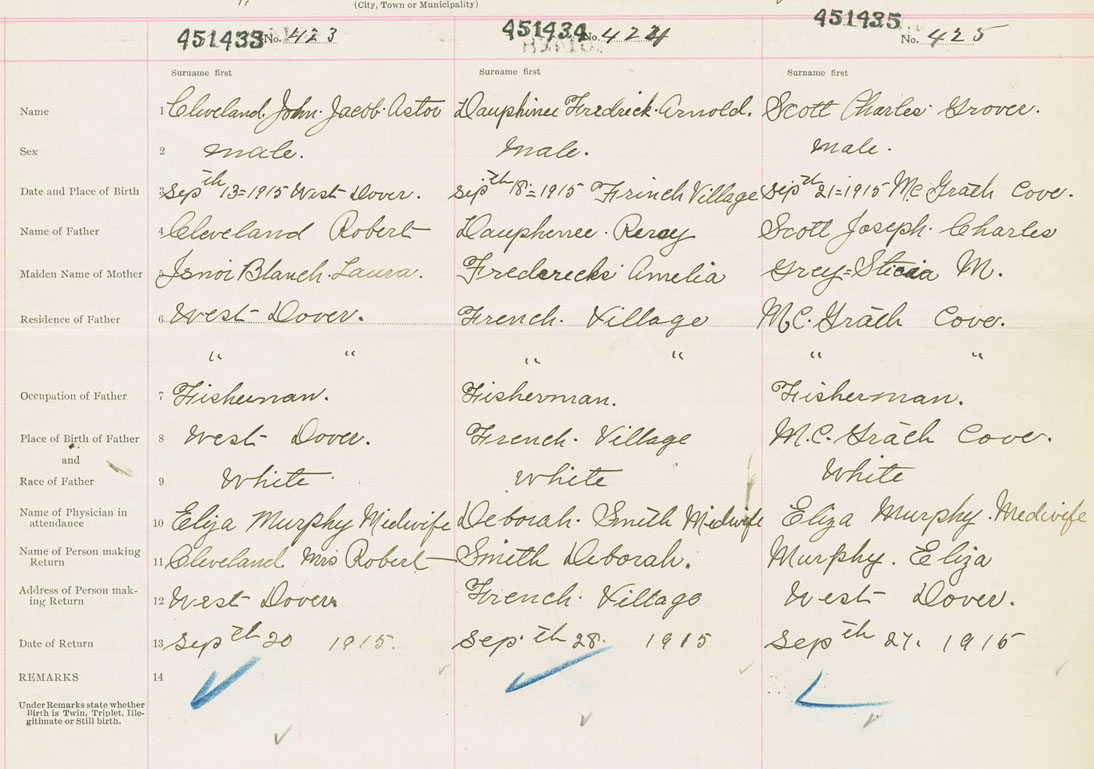 (City, Town or Municipality)
451433 No. 423 451434 No. 424 451435 No. 425
Surname first Surname first Surname first
Name 1 Cleveland John Jacob Astor Dauphinee Fredrick Arnold. Scott Charles Grover.
Sex 2 male. Male. Male.
Date and Place of Birth 3 Septh 13=1915 West Dover. Septh 18=1915 French Village Septh 21=1915 McGrath Cove.
Name of Father 4 Cleveland Robert Dauphenee Percy Scott Joseph Charles
Maiden Name of Mother 5 Blanch Laura. Fredericks Amelia Grey= M.
Residence of Father 6 West Dover. French Village MC. Grath Cove.
" " " " " "
Occupation of Father 7 Fisherman. Fisherman. Fisherman.
Place of Birth of Father 8 West Dover. French Village M.C. Grath Cove.
and
Race of Father 9 White White White
Name of Physician in
attendance 10 Eliza Murphy Midwife Deborah Smith Midwife Eliza Murphy Medwife
Name of Person making
Return 11 Cleveland Mrs Robert Smith Deborah. Murphy. Eliza
Address of Person mak-
ing Return 12 West Dover. French Village West Dover.
Date of Return 13 Septh 20 1915. Sep.th 28. 1915 Septh 27. 1915
REMARKS 14
Under Remarks state whether
Birth is Twin, Triplet, Ille-
gitimate or Still birth.